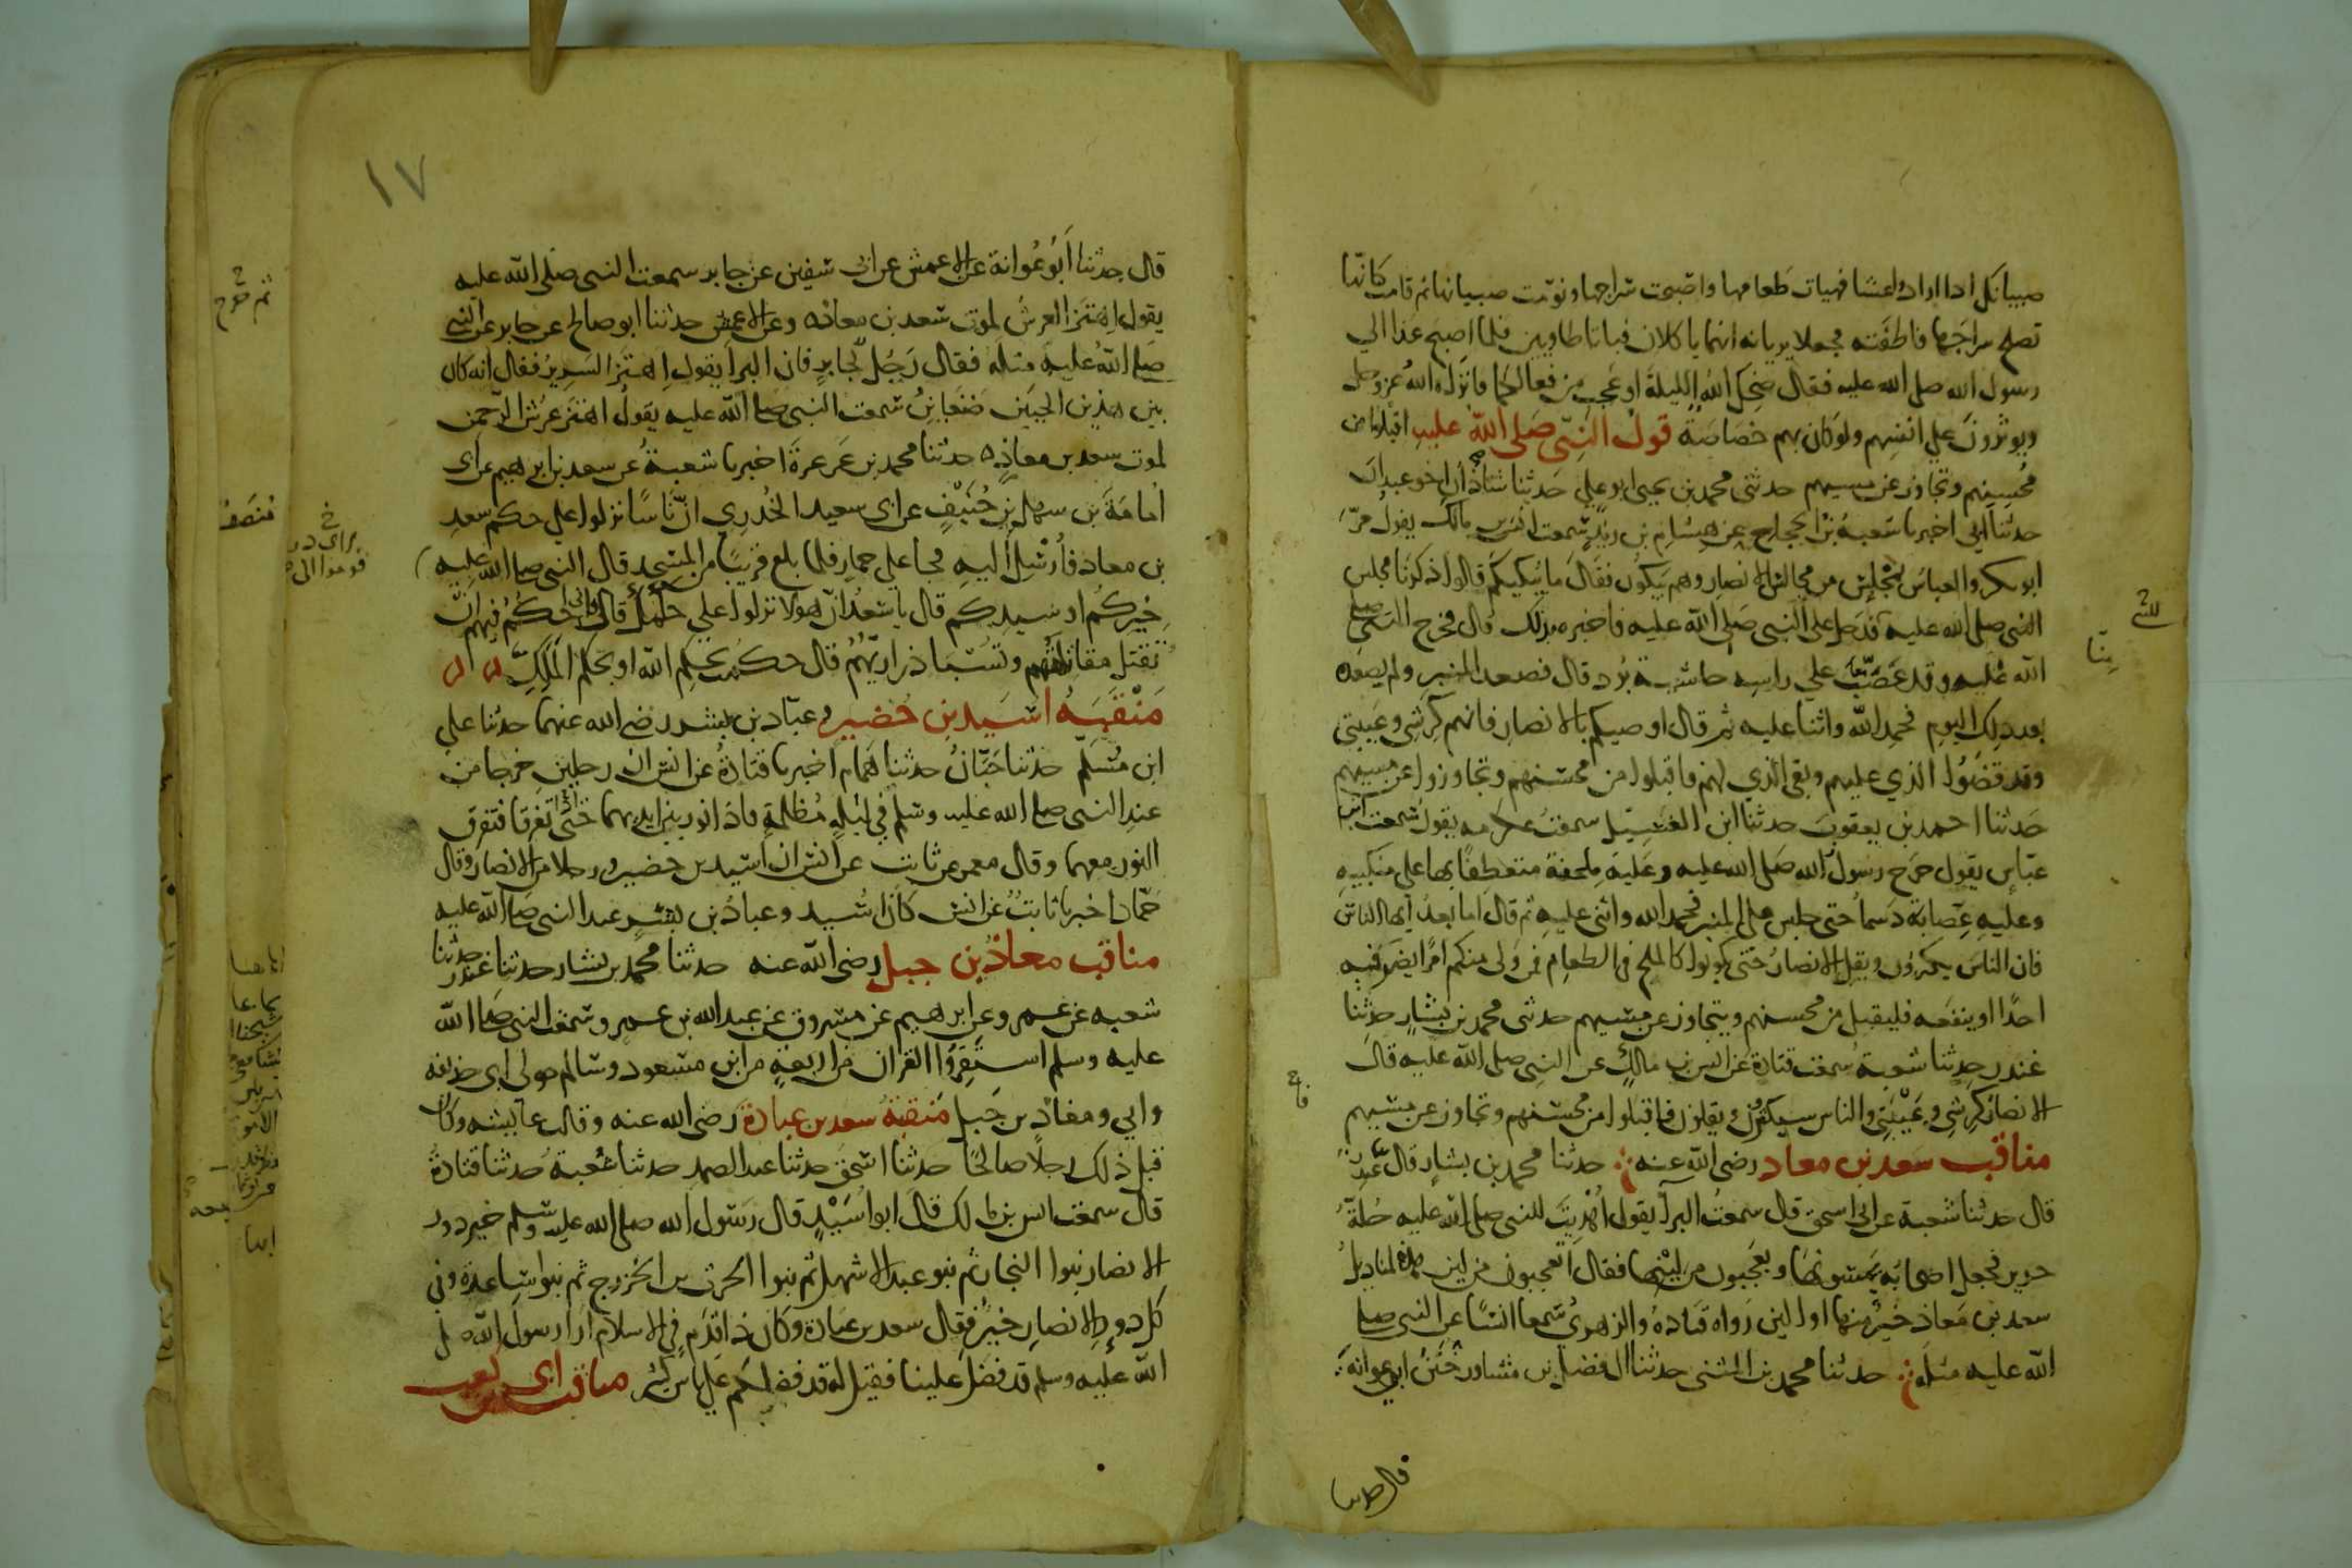 صبيانكل اذا ارادوا عشا فهيات طعامها واصبحت سراجها ونومت صبيانها ثم قامت كانها
تصلح سراجها فاطفته فجعلا يريانه انهما ياكلان فباتا طاويين فلما اصبح غدا الي
رسول الله صلى الله عليه فقال ضحك الله الليلة او عجب من فعالكما فانزل الله عز وجل
ويوثرون علي انفسهم ولو كان بهم خصاصة قول النبي صلى الله عليه اقبلوا من
محسنهم وتجاوزوا عن مسيهم حدثني محمد بن يحيى ابو علي حدثنا شاذان اخو عبدان
حدثنا ابي اخبرنا شعبة بن الحجاج عن هشام بن زيد سمعت انس بن مالك يقول مر
ابو بكر والعباس بمجلس من مجالس الانصار وهم يبكون فقال ما يبكيكم قالوا ذكرنا مجلس
النبي صلى الله عليه فدخل على النبي صلى الله عليه فاخبره بذلك قال فخرج النبي صلى
الله عليه وقد عصب علي راسه حاشية برد قال فصعد المنبر ولم يصعده
بعد ذلك اليوم فحمد الله واثنا عليه ثم قال اوصيكم بالانصار فانهم كرشي وعيبتي
وقد قضوا الذي عليهم وبقي الذي لهم فاقبلوا من محسنهم وتجاوزوا عن مسيهم
حدثنا احمد بن يعقوب حدثنا ابن الغسيل سمعت عكرمه يقول سمعت ابن
عباس يقول خرج رسول الله صلى الله عليه وعليه ملحفة متعطفا بها على منكبيه
وعليه عصابة دسما حتى جلس على المنبر فحمد الله واثنى عليه ثم قال اما بعد ايها الناس
فان الناس يكثرون ويقل الانصار حتى يكونوا كالملح في الطعام فمن ولي منكم امرا يضر فيه
احدا او ينفعه فليقبل من محسنهم ويتجاوز عن مسيهم حدثني محمد بن بشار حدثنا
غندر حدثنا شعبة سمعت قتادة عن انس بن مالك عن النبي صلى الله عليه قال
الانصار كرشي وعيبتي والناس سيكثرون ويقلون فاقبلوا من محسنهم وتجاوزوا عن مسيهم
مناقب سعد بن معاذ رضي الله عنه حدثنا محمد بن بشار قال غندر
قال حدثنا شعبة عن ابي اسحق قال سمعت البرا يقول اهديت للنبي صلى الله عليه حلة
حرير فجعل اصحابه يمسونها ويعجبون من لينها فقال اتعجبون من لين هذه لمناديل
سعد بن معاذ خير منها او الين رواه قتاده والزهري سمعا انسا عن النبي صلى
الله عليه مثله حدثنا محمد بن المثنى حدثنا الفضل بن مساور ختن ابي عوانة
قال حدثنا
١٧
قال حدثنا ابو عوانة عن الاعمش عن ابي سفين عن جابر سمعت النبي صلى الله عليه
يقول اهتز العرش لموت سعد بن معاذ وعن الاعمش حدثنا ابو صالح عن جابر عن النبي
صلى الله عليه مثله فقال رجل لجابر فان البرا يقول اهتز السرير فقال انه كان
بين هذين الحيين ضغاين سمعت النبي صلى الله عليه يقول اهتز عرش الرحمن
لموت سعد بن معاذ حدثنا محمد بن عرعرة اخبرنا شعبة عن سعد بن ابرهيم عن ابي
امامة بن سهل بن حنيف عن ابي سعيد الخدري ان ناسا نزلوا علي حكم سعد
بن معاذ فارسل اليه فجا علي حمار فلما بلغ قريبا من المسجد قال النبي صلى الله عليه
خيركم او سيدكم قال يا سعد ان هولا نزلوا علي حكمك قال فاني احكم فيهم ان
تقتل مقاتلتهم وتسبا ذراريهم قال حكمت بحكم الله او بحكم الملك
منقبة اسيد بن حضير وعباد بن بشر رضي الله عنهما حدثنا علي
ابن مسلم حدثنا حبان حدثنا همام اخبرنا قتادة عن انس ان رجلين خرجا من
عند النبي صلى الله عليه وسلم في ليلة مظلمة فاذا نور بين ايديهما حتى تفرقا فتفرق
النور معهما وقال معمر عن ثابت عن انس ان اسيد بن حضير ورجلا من الانصار وقال
حماد اخبرنا ثابت عن انس كان اسيد وعباد بن بشر عند النبي صلى الله عليه
مناقب معاذ بن جبل رضي الله عنه حدثنا محمد بن بشار حدثنا غندر حدثنا
شعبه عن عمرو عن ابرهيم عن مسروق عن عبد الله بن عمرو سمعت النبي صلى الله
عليه وسلم استقروا القران من اربعة من ابن مسعود وسالم مولى ابي حذيفه
وابي ومعاذ بن جبل منقبة سعد بن عبادة رضي الله عنه وقالت عايشه وكان
قبل ذلك رجلا صالحا حدثنا اسحق حدثنا عبد الصمد حدثنا شعبة حدثنا قتادة
قال سمعت انس بن مالك قال ابو اسيد قال رسول الله صلى الله عليه وسلم خير دور
الانصار بنوا النجار ثم بنو عبد الاشهل ثم بنوا الحرث بن الخزرج ثم بنوا ساعدة وفي
كل دور الانصار خير فقال سعد بن عبادة وكان ذا قدم في الاسلام ارا رسول الله صلى
الله عليه وسلم قد فضل علينا فقيل له قد فضلكم علي ناس كثير مناقب ابي بن كعب